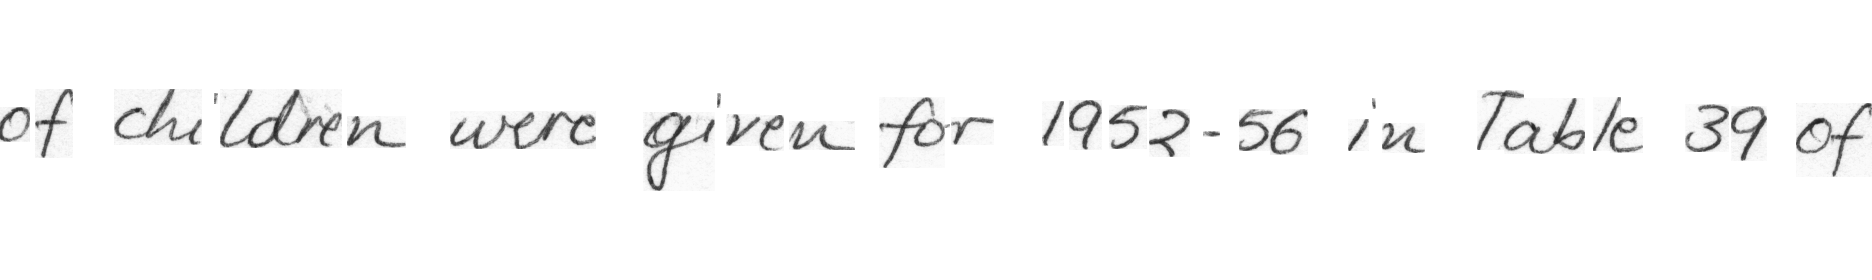 of children were given for 1952-56 in Table 39 of